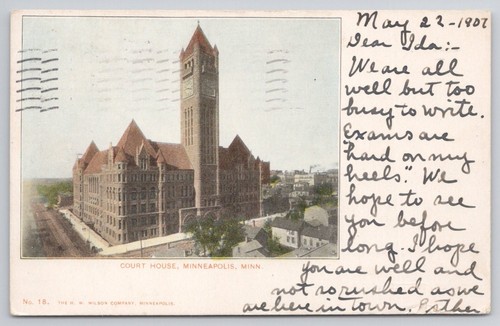 May 22-1907
Dear Ida:-
We are all
well but too
busy to write.
Exams are
"hard on my
heels." We
hope to see
you before
long. I hope
you are well and
not so rushed as we
are here in town. Esther
COURT HOUSE, MINNEAPOLIS, MINN.
No. 18. THE H. W. WILSON COMPANY, MINNEAPOLIS.